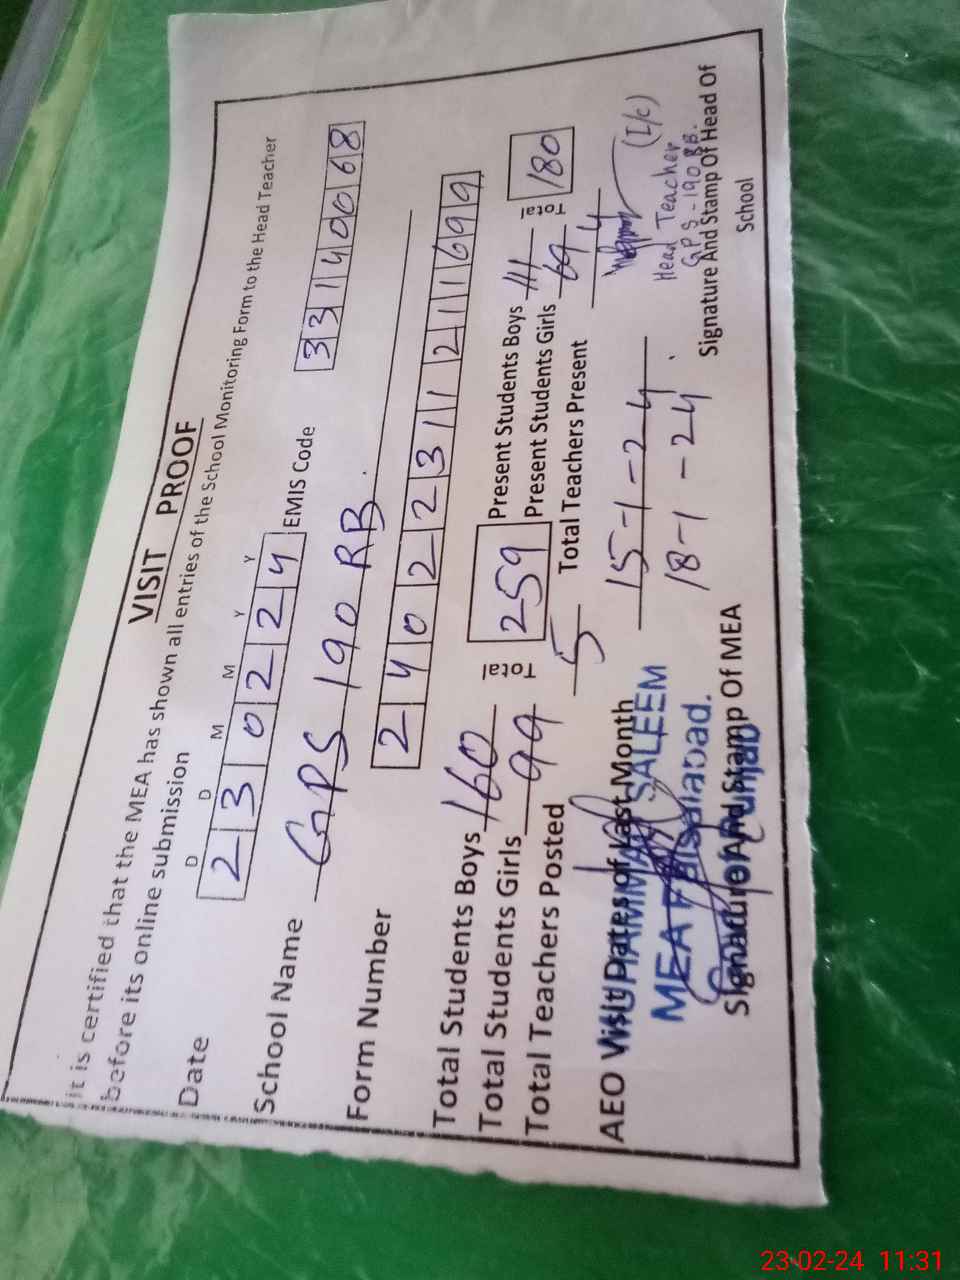 VISIT PROOF
it is certified that the MEA has shown all entries of the School Monitoring Form to the Head Teacher
before its online submission
D D M M Y Y
Date 230224 EMIS Code 33140068
School Name GPS 190 RB.
Form Number 2402231121 1699
Total Students Boys 160 Total 259 Present Students Boys 111 Total 180
Total Students Girls 99 Present Students Girls 69
Total Teachers Posted 5 Total Teachers Present 4
AEO Visit Dates of Last Month 15-1-24
18-1-24
MUHAMMAD SALEEM
MEA Faisalabad.
Punjab
Signature And Stamp Of MEA
(I/c)
Head Teacher
GPS-190 RB.
Signature And Stamp Of Head Of
School
23-02-24 11:31